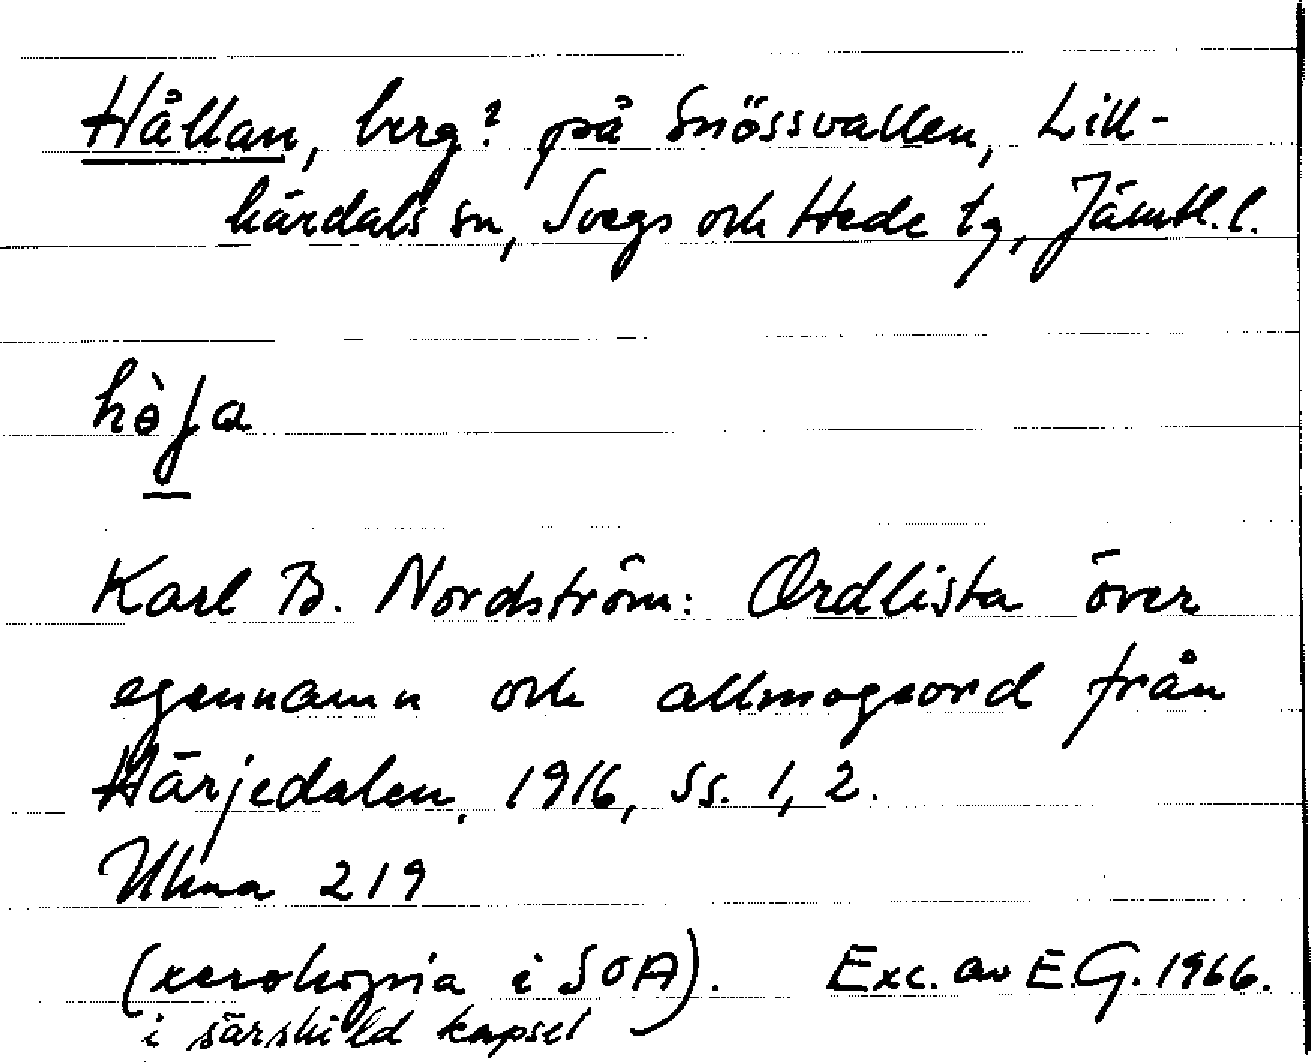 Hållan, berg? på Snössvallen, Lill-
härdals sn, Svegs och Hede tg, Jämtl.l.
hòʃa
Karl B. Nordström: Ordlista över
egennamn och allmogeord från
Härjedalen, 1916, ss. 1, 2.
Ulma 219
(xerokopia i SOA). Exc. av E.G. 1966.
i särskild kapsel